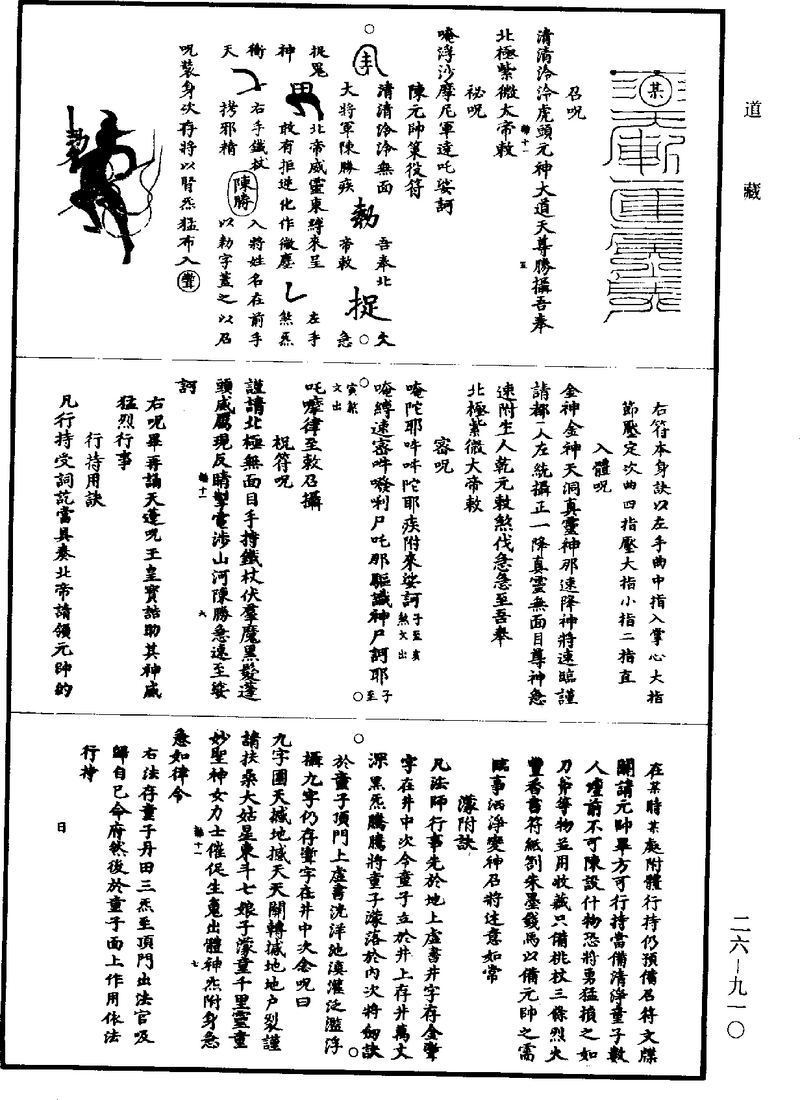 道藏
某
召呪
清清泠泠虎頭元神大道天尊勝攝吾奉
北極紫微大帝敕
祕呪
唵浮沙摩尼軍達吒娑訶
陳元帥策役符
清清泠泠無面
大將軍陳勝疾
勅
吾奉北
帝敕
捉
急
捉鬼
神
北帝威靈東縛來呈
敢有拒逆化作微塵
左手
煞炁
衝
天
右手鐵杖
拷邪精
陳勝
入將姓名在前手
以勅字蓋之以召
呪裝身次存將以腎炁猛布入
勅
右符本身訣以左手曲中指入掌心大指
節壓定次曲四指壓大指小指二指直
入體呪
金神金神天洞真靈神那速降神將速臨謹
請都一人左統攝正一降真靈無面目尊神急
速附生人乾元敕煞伐急急至吾奉
北極紫微大帝敕
密呪
唵陀耶吽吽陀耶疾附來娑訶
唵縛速密吽發唎尸吒那驅識神尸訶耶
吒嚤律至敕召攝
祝符呪
謹請北極無面目手持鐵杖伏羣魔黑髮蓬
頭威厲現反睛掣電涉山河陳勝急速至娑
訶
右呪畢再誦天蓬呪玉皇寶誥助其神威
猛烈行事
行持用訣
凡行持受詞訖當具奏北帝請領元帥的
在某時某處附體行持仍預備召符文牒
關請元帥畢方可行持當備清淨童子數
人壇前不可陳設什物恐將勇猛損之如
刀斧等物並用收藏只備桃杖三條烈火
豐香書符紙劄朱墨錢馬以備元帥之需
臨事洒淨變神召將述意如常
濛附訣
凡法師行事先於地上虛書井字存金
字在井中次令童子立於井上存井萬丈
深黑炁騰騰將童子濛落於內次將劒訣
於童子頂門上虛書洗洋池滇灌泛濫浮
攝九字仍存字在井中次念呪曰
九字團天撼地撼天天關轉撼地地戶裂謹
請扶桑大姑星東斗七娘子濛童千里靈童
妙聖神女力士催促生魂出體神炁附身急
急如律令
右法存童子丹田三炁至頂門出法官吸
歸自己命府然後於童子面上作用依法
行持
日
二六—九一〇